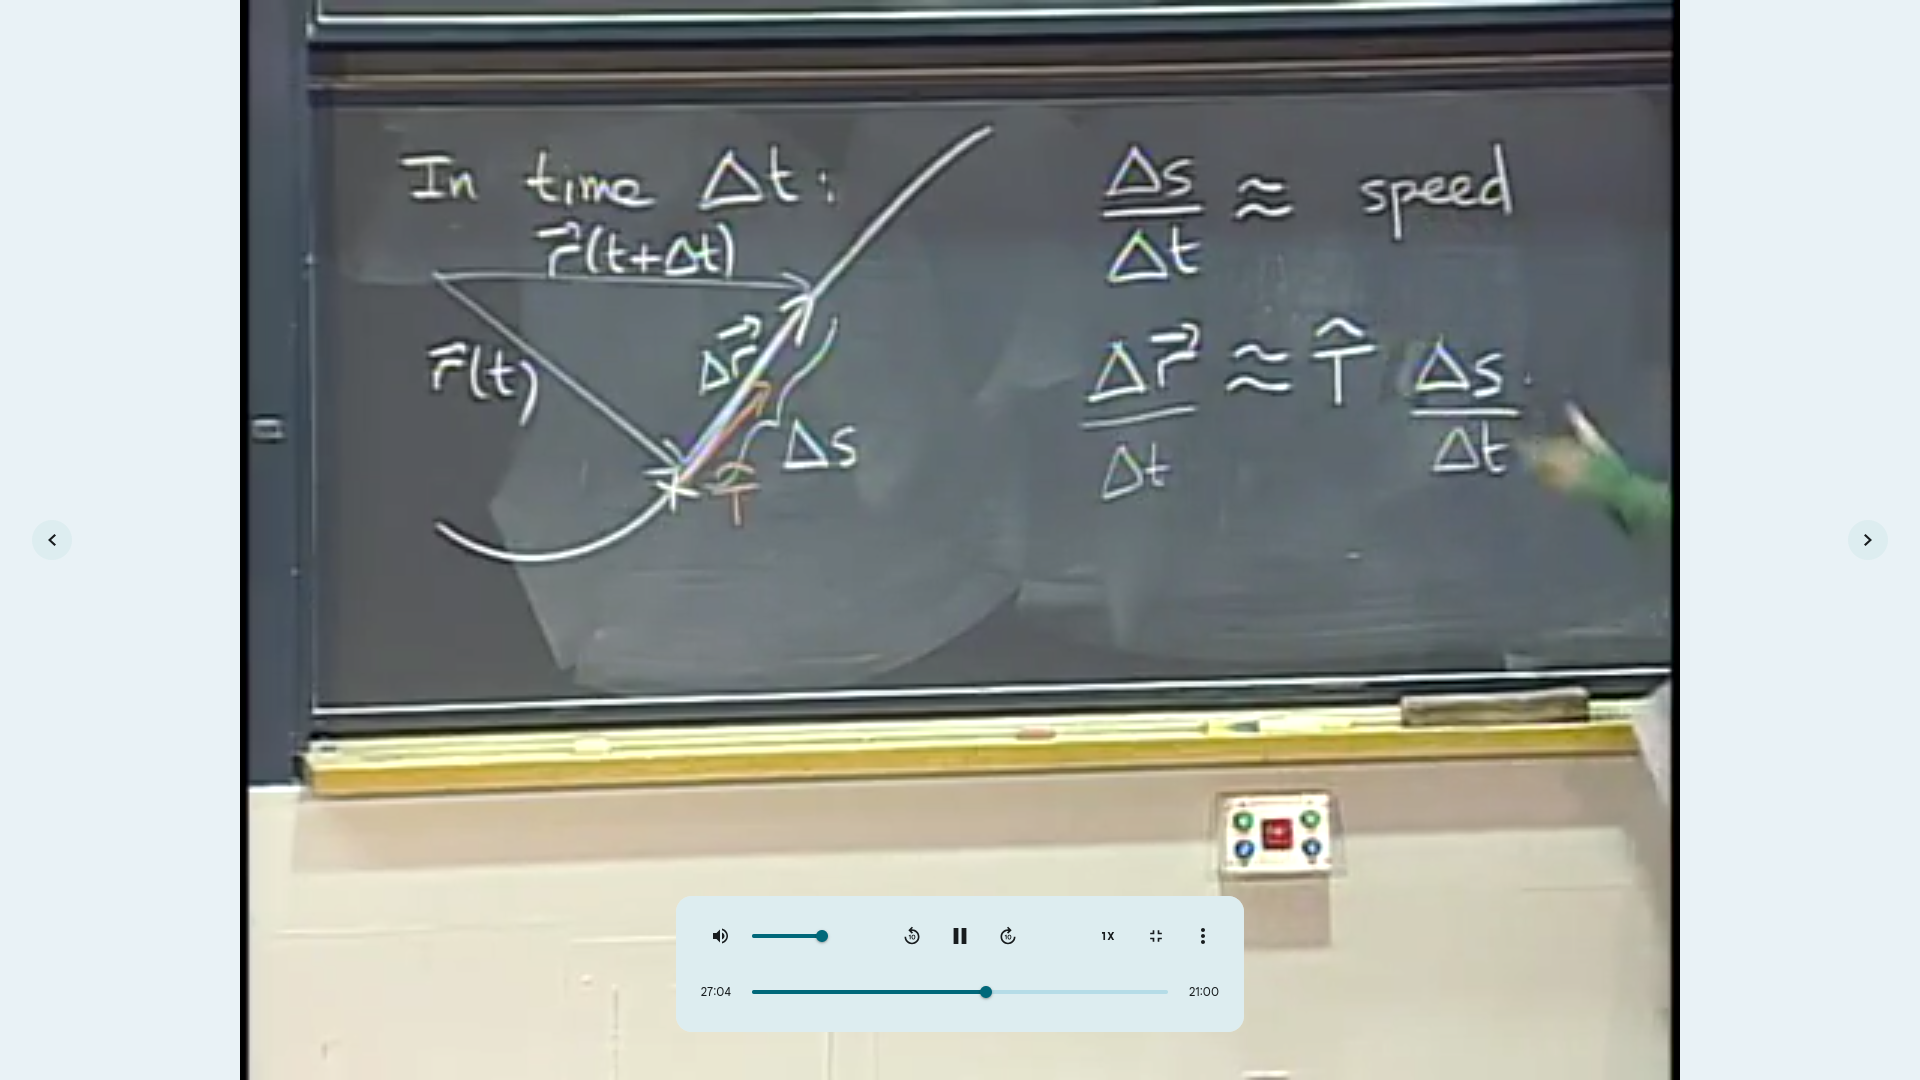 In time Δt:
r⃗(t+Δt)
r⃗(t)
Δr⃗
Δs
T̂
Δs/Δt ≈ speed
Δr⃗/Δt ≈ T̂ Δs/Δt
10
10
1X
27:04
21:00